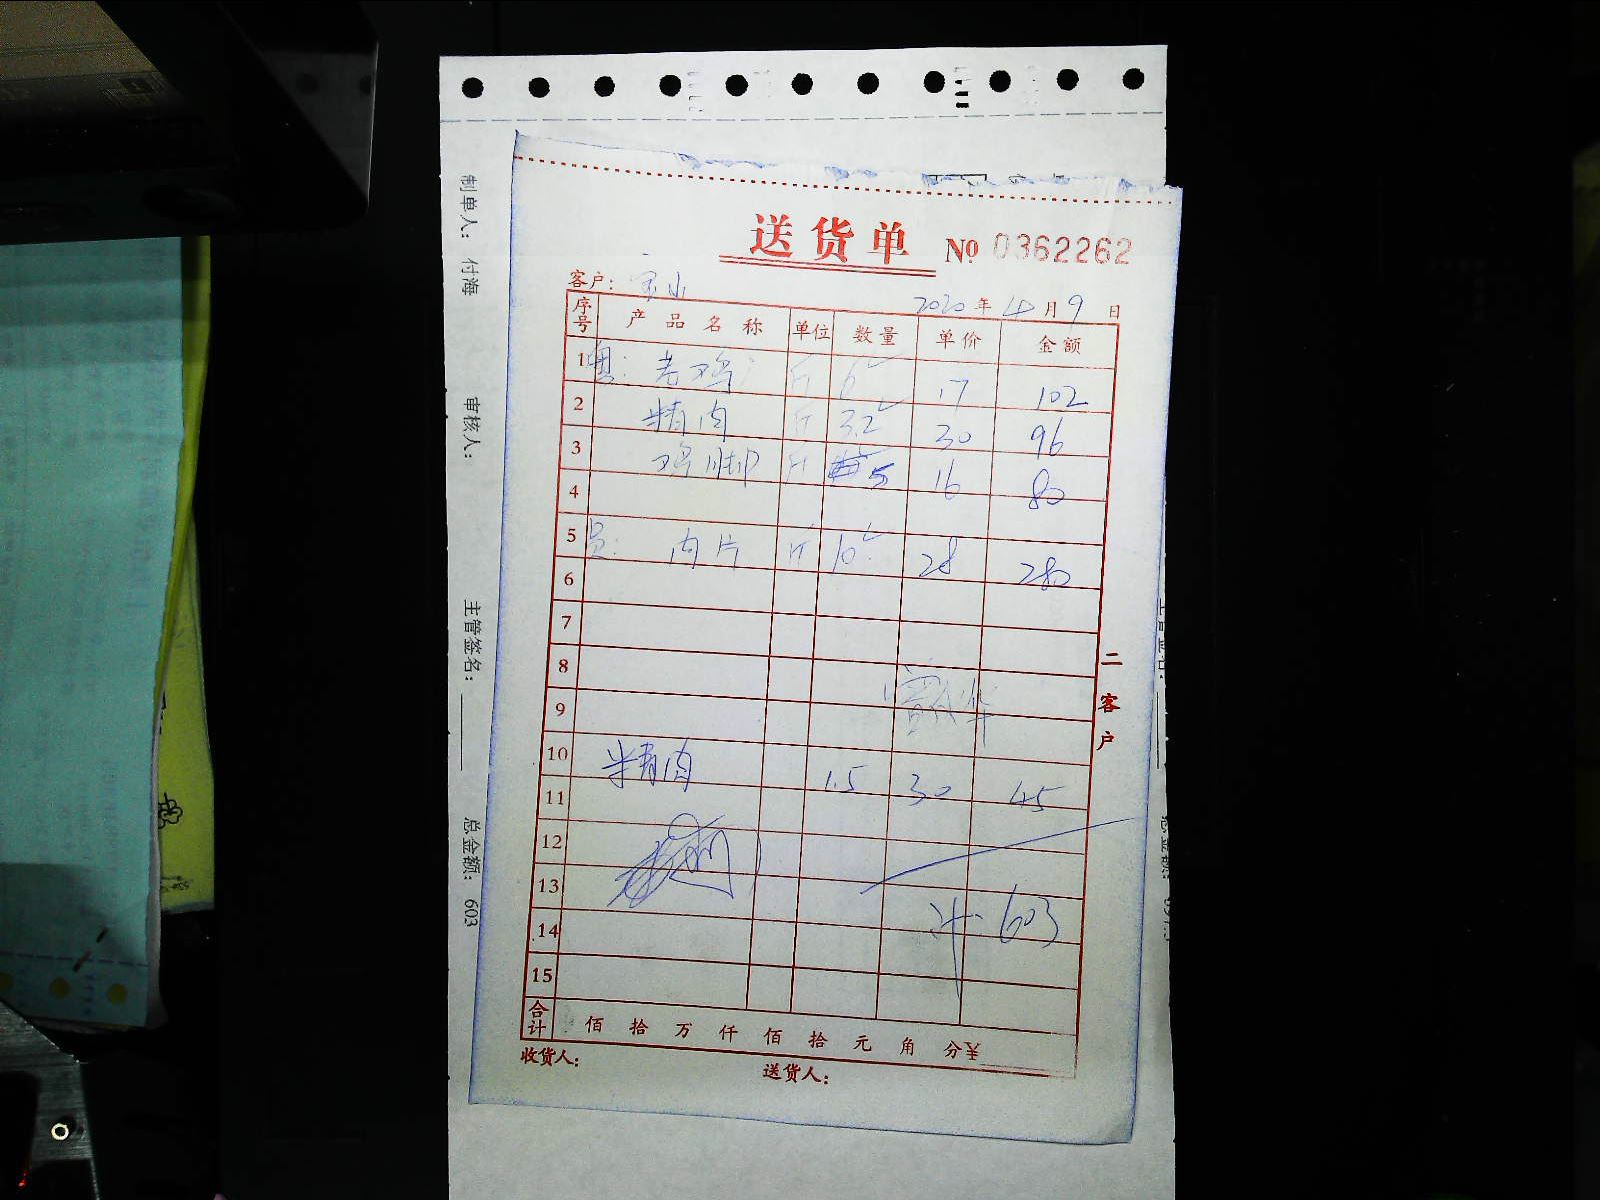 送货单 № 0362262
客户: 宝山 2020年4月9日
序号 产品名称 单位 数量 单价 金额
1 粤: 老鸡 斤 6 17 102
2 精肉 斤 3.2 30 96
3 鸡脚 斤 5 16 80
4
5 员: 肉片 斤 10 28 280
6
7
8
9
10 精肉 1.5 30 45
11
12
13
14 计. 603
15
合计 佰 拾 万 仟 佰 拾 元 角 分¥
收货人: 送货人:
二客户
制单人: 付海 审核人: 主管签名: 总金额: 603